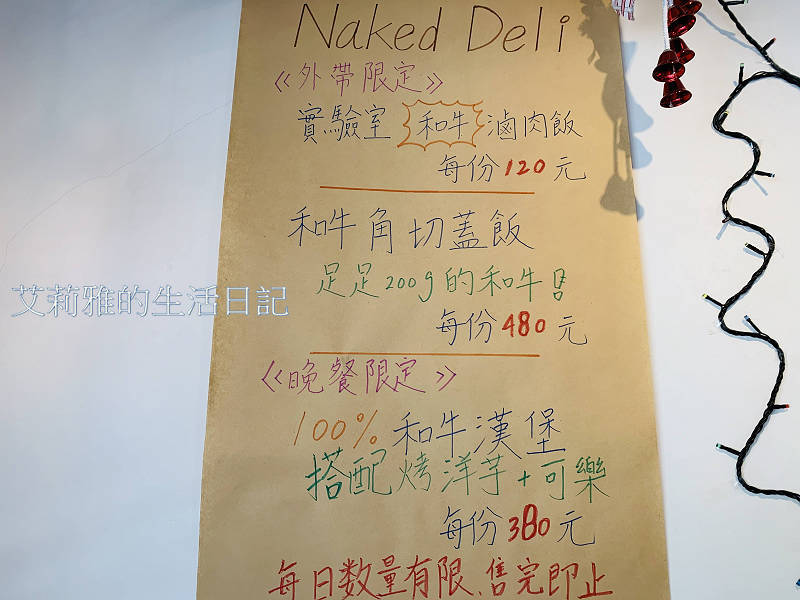 Naked Deli
《外帶限定》
實驗室 和牛 滷肉飯
每份120元
和牛角切蓋飯
足足200g的和牛!
每份480元
《晚餐限定》
100%和牛漢堡
搭配烤洋芋+可樂
每份380元
每日數量有限、售完即止
艾莉雅的生活日記